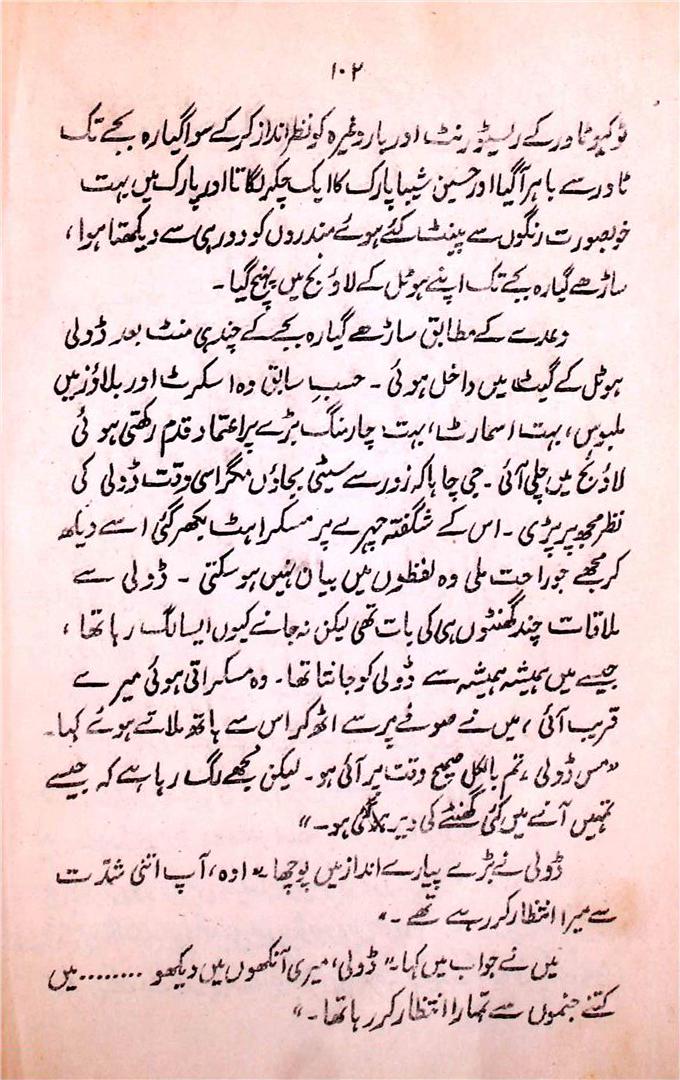 ۱۰۲
ٹوکیو ٹاور کے ریسٹورنٹ اور بار وغیرہ کو نظر انداز کرکے سوا گیارہ بجے تک
ٹاور سے باہر آگیا اور حسین شیبا پارک کا ایک چکر لگاتا اور پارک میں بہت
خوبصورت رنگوں سے پینٹ کئے ہوئے مندروں کو دور ہی سے دیکھتا ہوا،
ساڑھے گیارہ بجے تک اپنے ہوٹل کے لاؤنج میں پہنچ گیا۔
وعدے کے مطابق ساڑھے گیارہ بجے کے چند ہی منٹ بعد ڈولی
ہوٹل کے گیٹ میں داخل ہوئی۔ حسبِ سابق وہ اسکرٹ اور بلاؤز میں
ملبوس، بہت اسمارٹ، بہت چارمنگ بڑے پر اعتماد قدم رکھتی ہوئی
لاؤنج میں چلی آئی۔ جی چاہا کہ زور سے سیٹی بجاؤں مگر اسی وقت ڈولی کی
نظر مجھ پر پڑی۔ اس کے شگفتہ چہرے پر مسکراہٹ بکھر گئی اسے دیکھ
کر مجھے جو راحت ملی وہ لفظوں میں بیان نہیں ہوسکتی۔ ڈولی سے
ملاقات چند گھنٹوں ہی کی بات تھی لیکن نہ جانے کیوں ایسا لگ رہا تھا،
جیسے میں ہمیشہ ہمیشہ سے ڈولی کو جانتا تھا۔ وہ مسکراتی ہوئی میرے
قریب آئی، میں نے صوفے پر سے اٹھ کر اس سے ہاتھ ملاتے ہوئے کہا۔
"مس ڈولی، تم بالکل صحیح وقت پر آئی ہو۔ لیکن مجھے لگ رہا ہے کہ جیسے
تمہیں آنے میں کئی گھنٹے کی دیر ہوگئی ہو۔"
ڈولی نے بڑے پیارے انداز میں پوچھا "اوہ، آپ اتنی شدّت
سے میرا انتظار کر رہے تھے۔"
میں نے جواب میں کہا "ڈولی، میری آنکھوں میں دیکھو ........ میں
کتنے جنموں سے تمہارا انتظار کر رہا تھا۔"